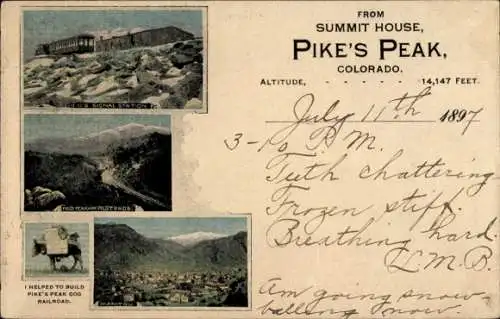 FROM
SUMMIT HOUSE,
PIKE'S PEAK,
COLORADO.
ALTITUDE, - - - - - 14,147 FEET.
July 11th 1897
3-10 P.M.
Tuth chattering
Frozen stiff.
Breathing hard.
L.M.B.
Am going snow-
balling now.
U.S. SIGNAL STATION
I HELPED TO BUILD
PIKE'S PEAK COG
RAILROAD.